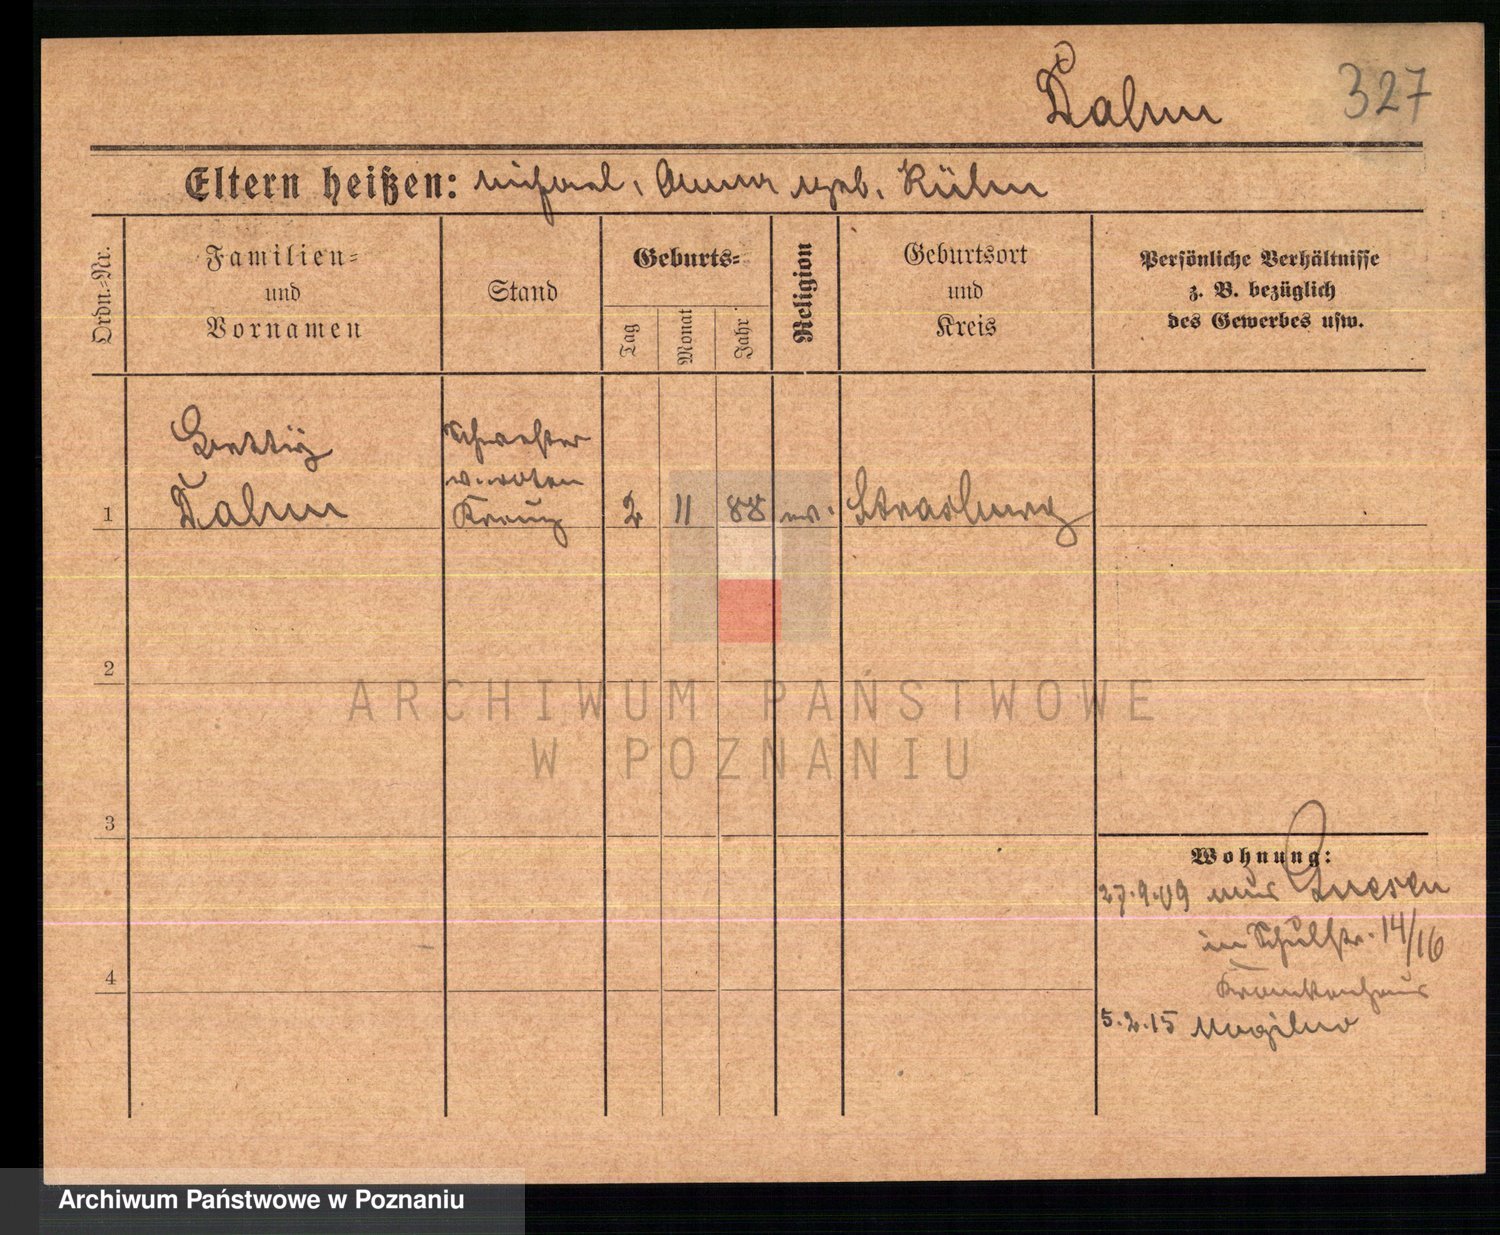 Dahm
327
Eltern heißen: Michael, Anna geb. Kühn
Ordn.-Nr.
Familien-
und
Vornamen
Stand
Geburts-
Tag
Monat
Jahr
Religion
Geburtsort
und
Kreis
Persönliche Verhältnisse
z. B. bezüglich
des Gewerbes usw.
1
Dahm
Schwester
v. roten
Kreuz
2
11
88
ev.
Strasburg
2
3
4
Wohnung:
27.9.09 aus Gnesen
in Schulstr. 14/16
Krankenhaus
5.2.15 Mogilno
ARCHIWUM PAŃSTWOWE
W POZNANIU
Archiwum Państwowe w Poznaniu